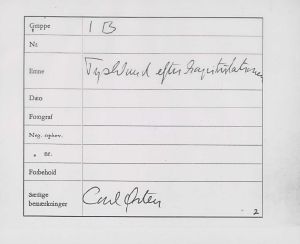 Gruppe I B
Nr.
Emne Tyskland efter kapitulationen
Dato
Fotograf
Neg. ophov.
" nr.
Forbehold
Særlige bemærkninger Carl Østen
2